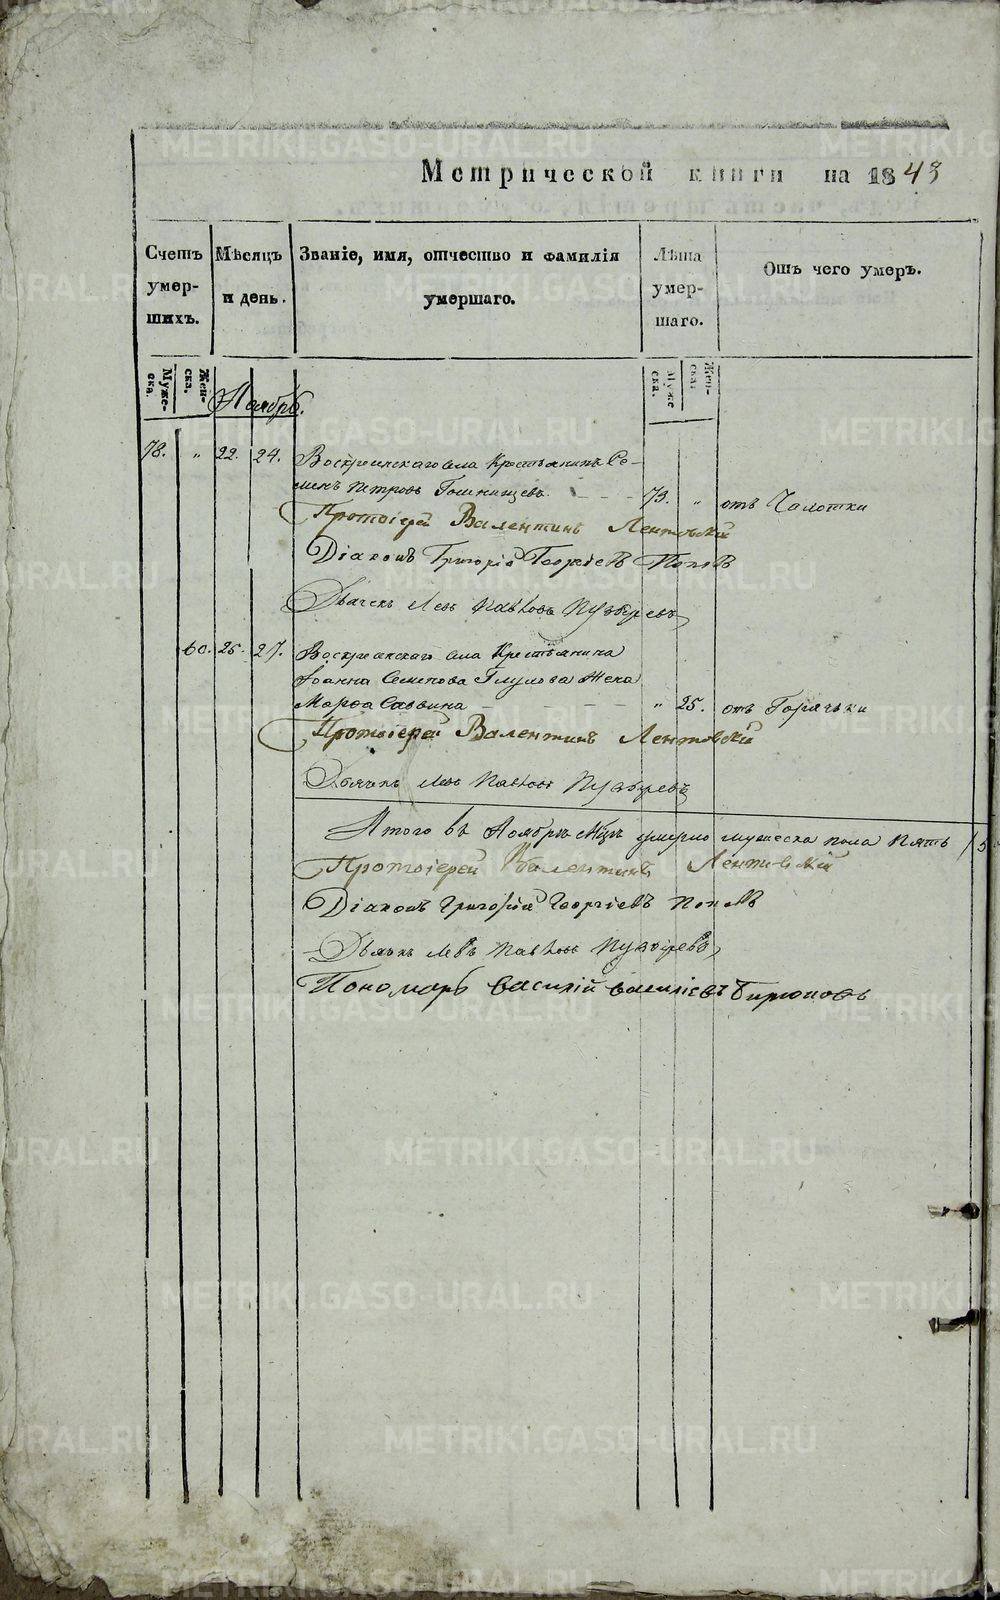 Метрической книги на 1843
Счетъ умер-шихъ.
Мѣсяцъ и день.
Званіе, имя, отчество и фамилія умершаго.
Лѣта умер-шаго.
Отъ чего умеръ.
Муже-ска.
Жен-ска.
Муже ска.
Жен-ска.
Ноябрь.
78. „ 22. 24. Воскресенскаго села Крестьянинъ Се-
менъ Петровъ 73. „ отъ Чахотки
Протоіерей Валентинъ Лентовскій
Діаконъ Григорій Георгіевъ Поповъ
Дьячекъ Левъ Павловъ Пузыревъ
60. 25. 27. Воскресенскаго села Крестьянина
Іоанна Семенова Глухова Жена
Марфа Саввина „ 25. отъ Горячки
Протоіерей Валентинъ Лентовскій
Дьячекъ Левъ Павловъ Пузыревъ
Итого въ Ноябрѣ Мцѣ умерло мужеска пола Пять / 5
Протоіерей Валентинъ Лентовскій
Діаконъ Григорій Георгіевъ Поповъ
Дьячекъ Левъ Павловъ Пузыревъ
Пономарь Василій Василіевъ Бирюковъ
METRIKI.GASO-URAL.RU